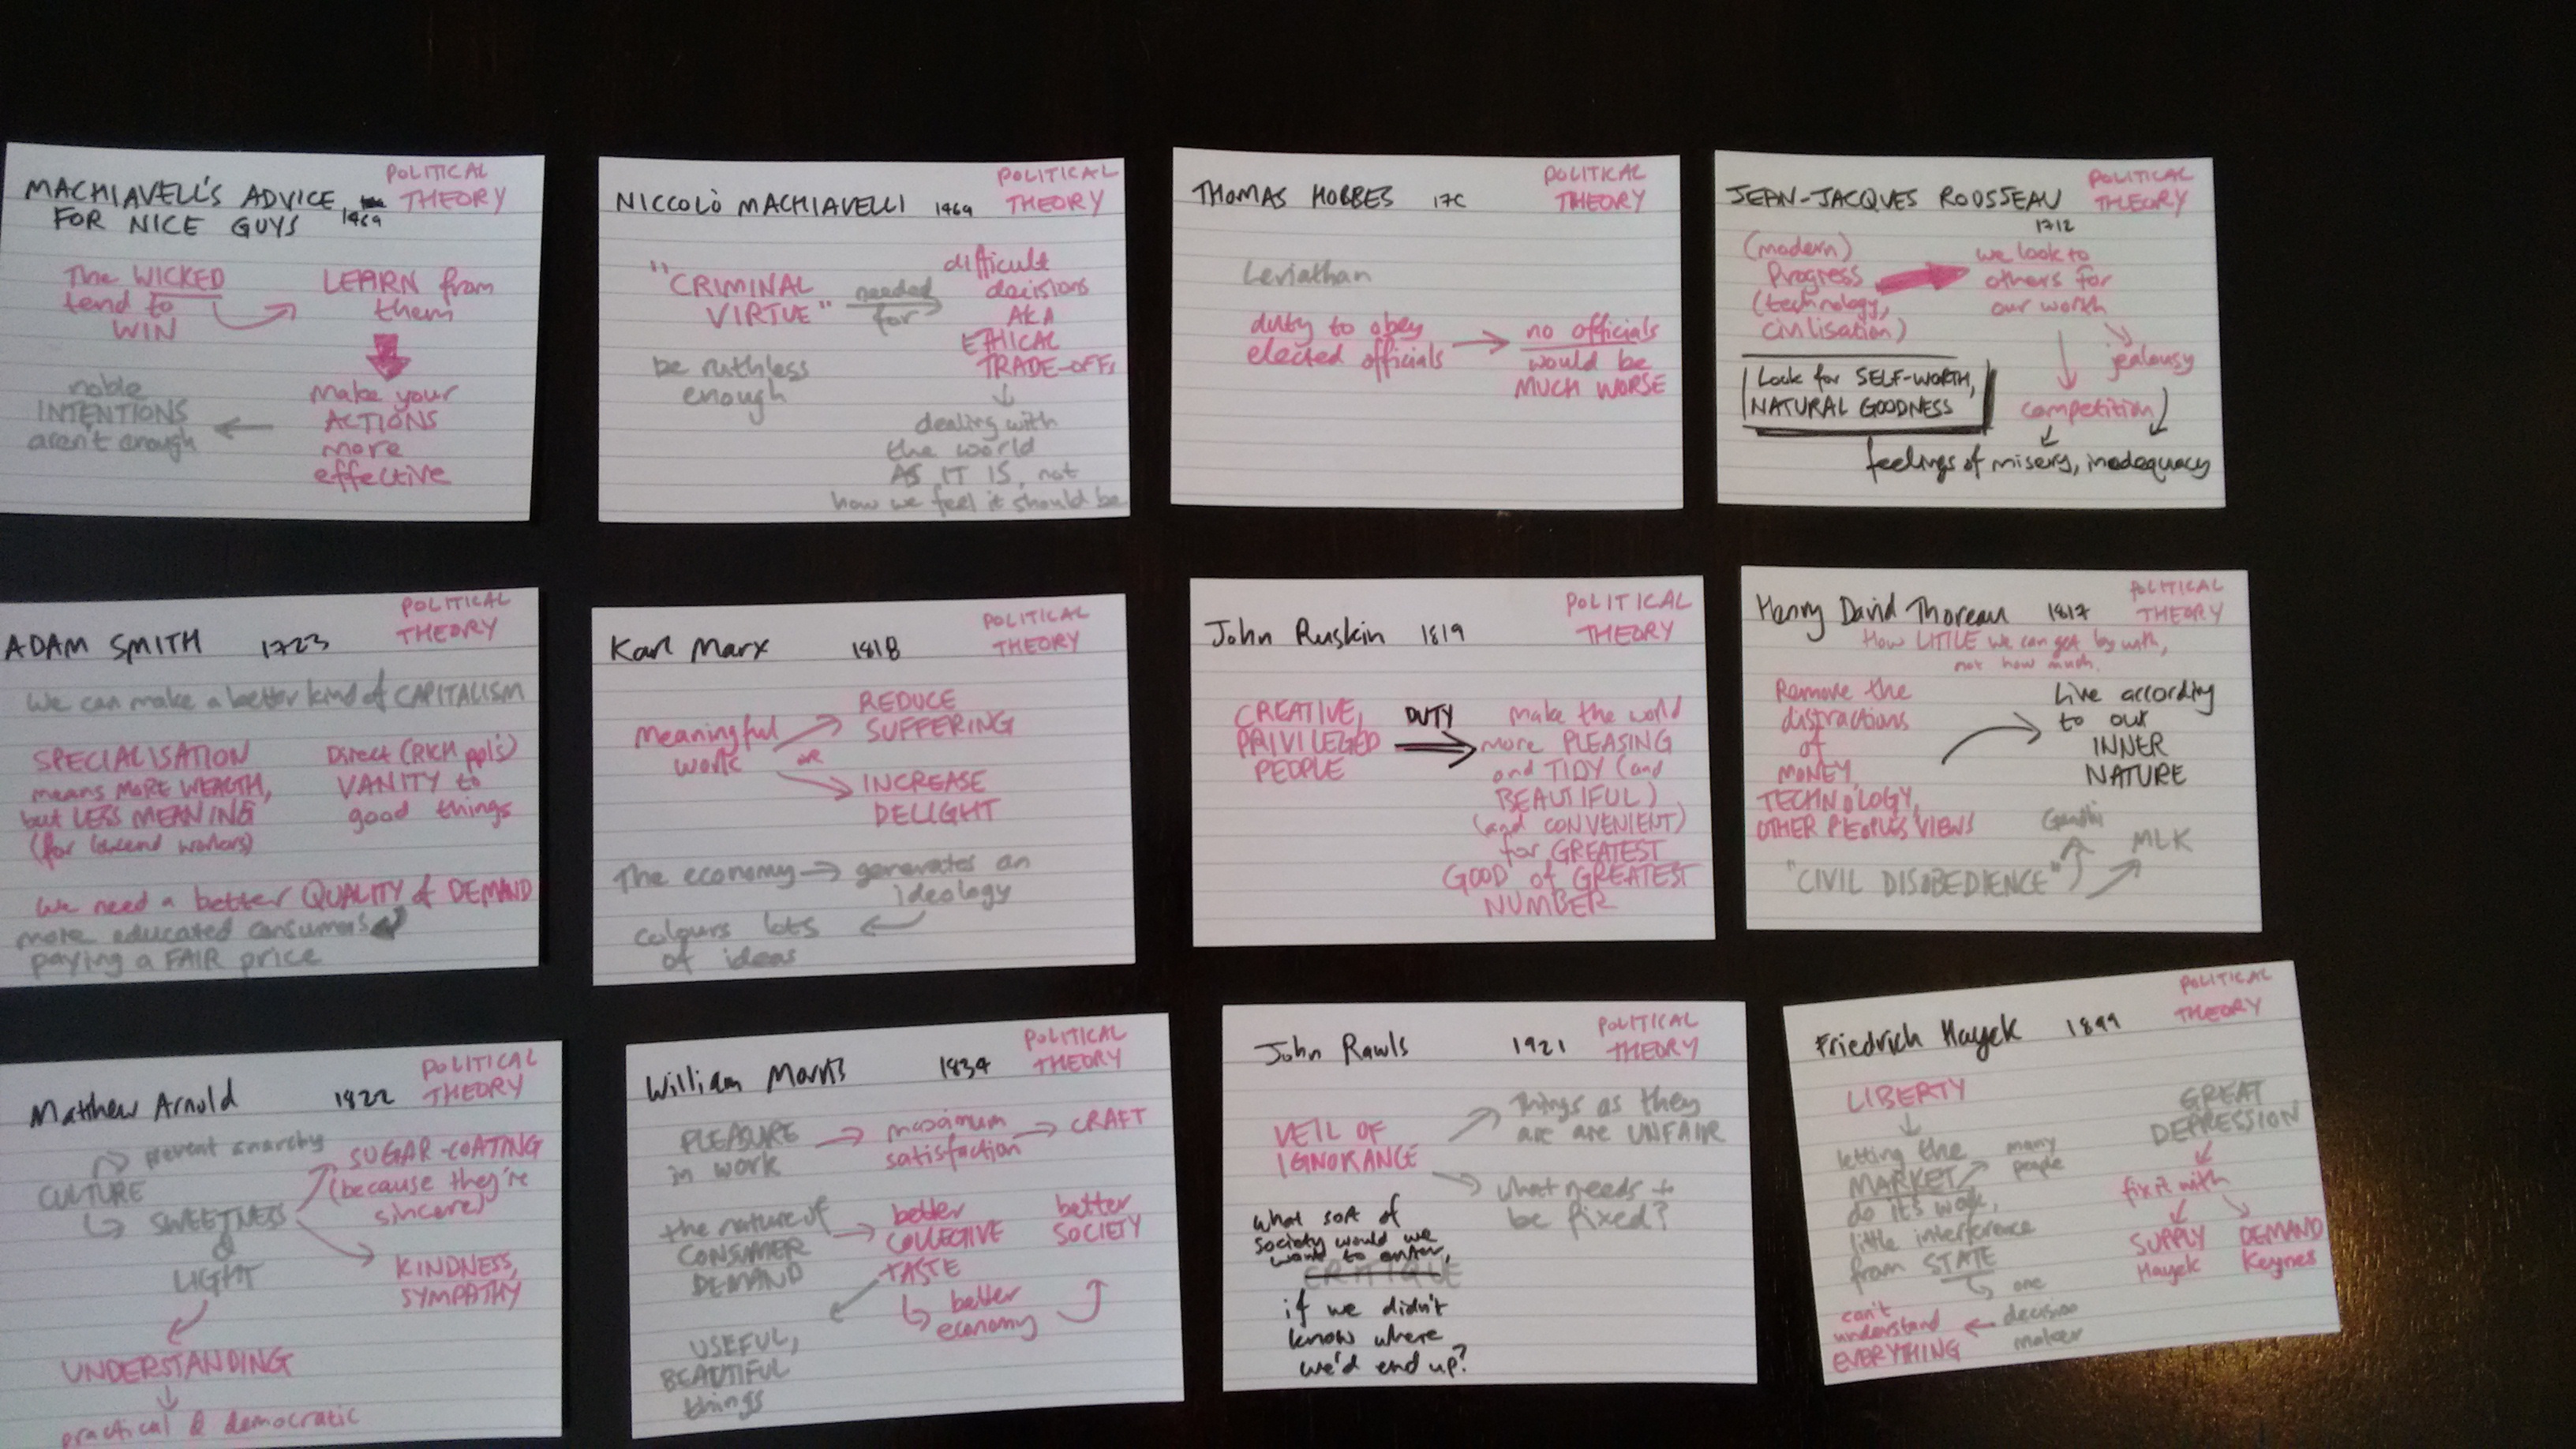 MACHIAVELL'S ADVICE
FOR NICE GUYS 1469
POLITICAL
THEORY
The WICKED
tend to
WIN
LEARN from
them
make your
ACTIONS
more
effective
noble
INTENTIONS
aren't enough
NICCOLÒ MACHIAVELLI 1469
POLITICAL
THEORY
"CRIMINAL
VIRTUE"
needed
for
difficult
decisions
AKA
ETHICAL
TRADE-OFFs
be ruthless
enough
dealing with
the world
AS IT IS, not
how we feel it should be
THOMAS HOBBES 17C
POLITICAL
THEORY
Leviathan
duty to obey
elected officials
no officials
would be
MUCH WORSE
JEAN-JACQUES ROUSSEAU
1712
POLITICAL
THEORY
(modern)
Progress
(technology,
civilisation)
we look to
others for
our worth
jealousy
competition
Look for SELF-WORTH,
NATURAL GOODNESS
feelings of misery, inadequacy
ADAM SMITH 1723
POLITICAL
THEORY
We can make a better kind of CAPITALISM
SPECIALISATION
means MORE WEALTH,
but LESS MEANING
(for workers)
Direct (RICH ppl's)
VANITY to
good things
We need a better QUALITY of DEMAND
more educated consumers
paying a FAIR price
Karl Marx 1818
POLITICAL
THEORY
meaningful
work
REDUCE
SUFFERING
or
INCREASE
DELIGHT
The economy → generates an
ideology
colours lots
of ideas
John Ruskin 1819
POLITICAL
THEORY
CREATIVE,
PRIVILEGED
PEOPLE
DUTY
make the world
more PLEASING
and TIDY (and
BEAUTIFUL)
(and CONVENIENT)
for GREATEST
GOOD of GREATEST
NUMBER
Henry David Thoreau 1817
POLITICAL
THEORY
How LITTLE we can get by with,
not how much.
Remove the
distractions
of
MONEY,
TECHNOLOGY,
OTHER PEOPLES VIEWS
Live according
to our
INNER
NATURE
Gandhi
MLK
"CIVIL DISOBEDIENCE"
Matthew Arnold 1822
POLITICAL
THEORY
prevent anarchy
CULTURE
SWEETNESS
&
LIGHT
SUGAR-COATING
(because they're
sincere)
KINDNESS,
SYMPATHY
UNDERSTANDING
practical & democratic
William Morris 1834
POLITICAL
THEORY
PLEASURE
in work
maximum
satisfaction
CRAFT
the nature of
CONSUMER
DEMAND
better
COLLECTIVE
TASTE
better
SOCIETY
better
economy
USEFUL,
BEAUTIFUL
things
John Rawls 1921
POLITICAL
THEORY
VEIL OF
IGNORANCE
Things as they
are are UNFAIR
what needs to
be fixed?
what sort of
society would we
want to enter,
CRITIQUE
if we didn't
know where
we'd end up?
Friedrich Hayek 1899
POLITICAL
THEORY
LIBERTY
letting the
MARKET
do it's work,
little interference
from STATE
many
people
one
decision
maker
can't
understand
EVERYTHING
GREAT
DEPRESSION
fix it with
SUPPLY
Hayek
DEMAND
Keynes